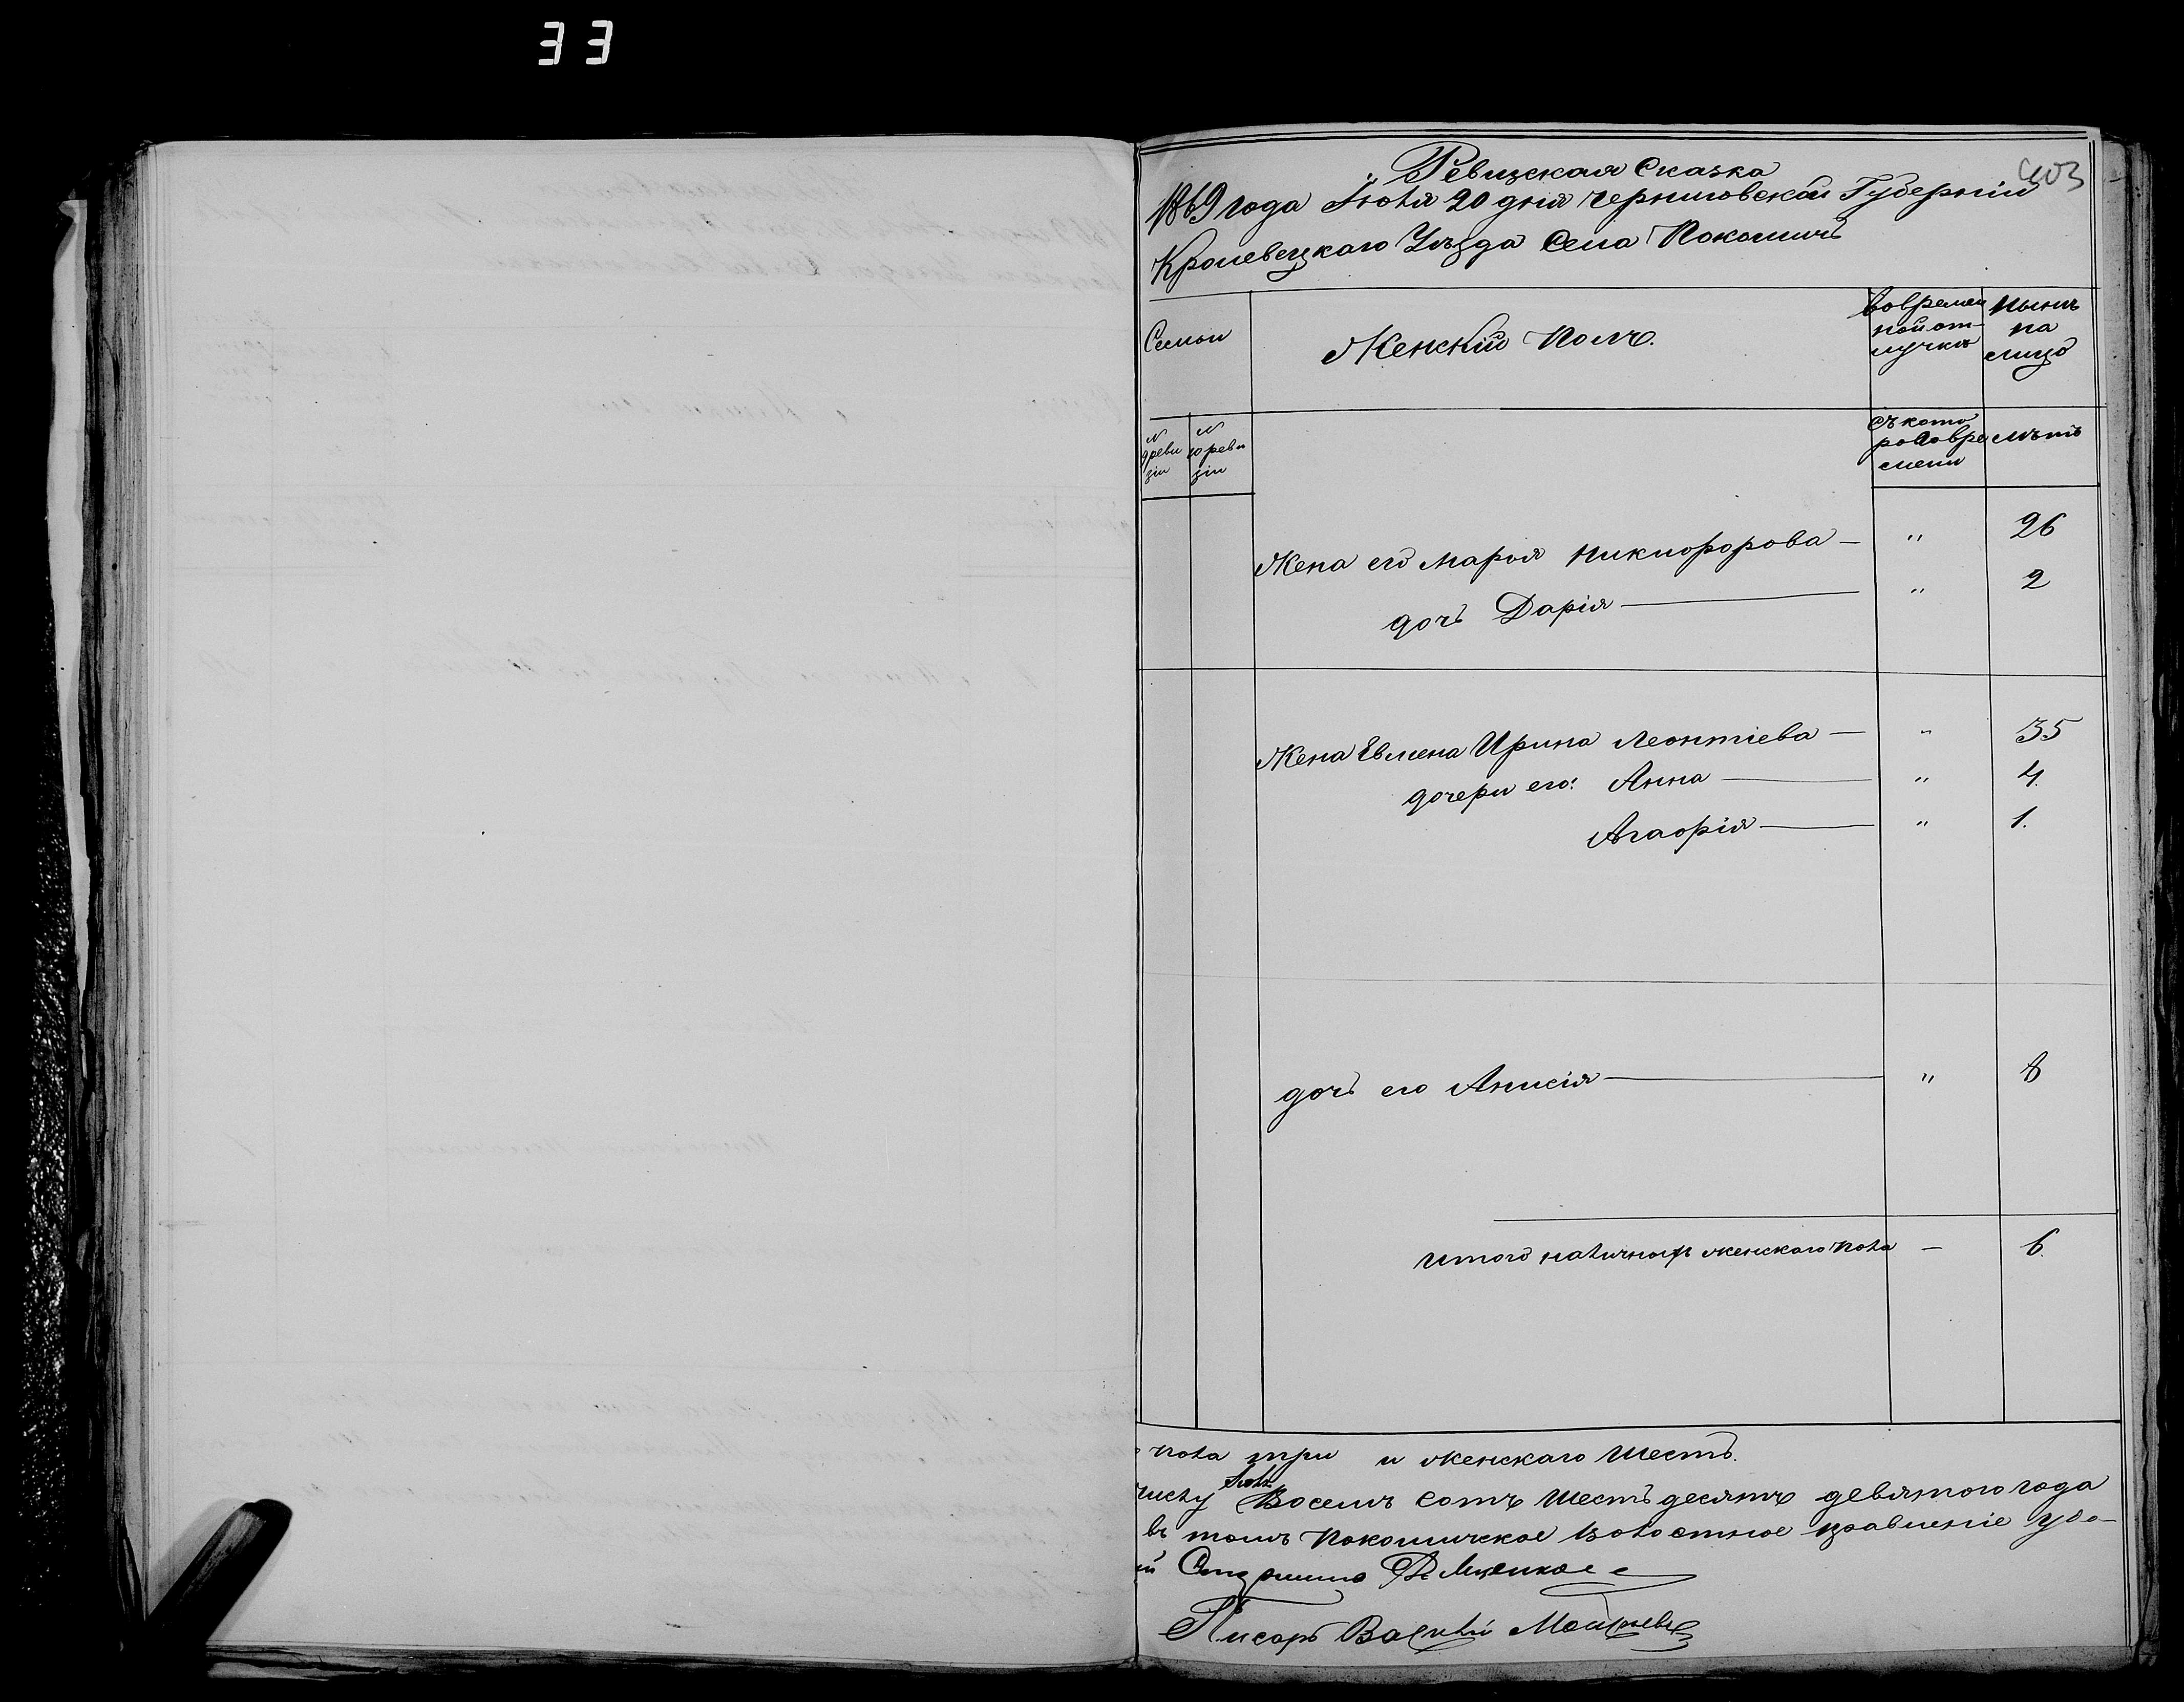 33
403
Ревизская Сказка
1869 года Июля 20 дня Черниговской Губерніи
Кролевецкаго Уѣзда Села Покошичь
Семьи
Женскій Полъ.
Вовремен
ной от-
лучкѣ
Нынѣ
на
лицо
№
9 реви
зіи
№
10 реви
зіи
Съ кото
раго вре
мени
Лѣтъ
Жена его Марья Никифорова — " 26
дочь Дарія — " 2
Жена Евмена Ирина Леонтіева — " 35
дочери его: Анна — " 4.
Агафрія — " 1.
дочь его Анисія — " 8
Итого наличнаго женскаго пола — 6.
пола три и женскаго шесть.
Июля
числу Восемь сотъ шестьдесятъ девятого года
въ томъ Покошичское Волостное правленіе удо-
й Старшина
Писарь Василій